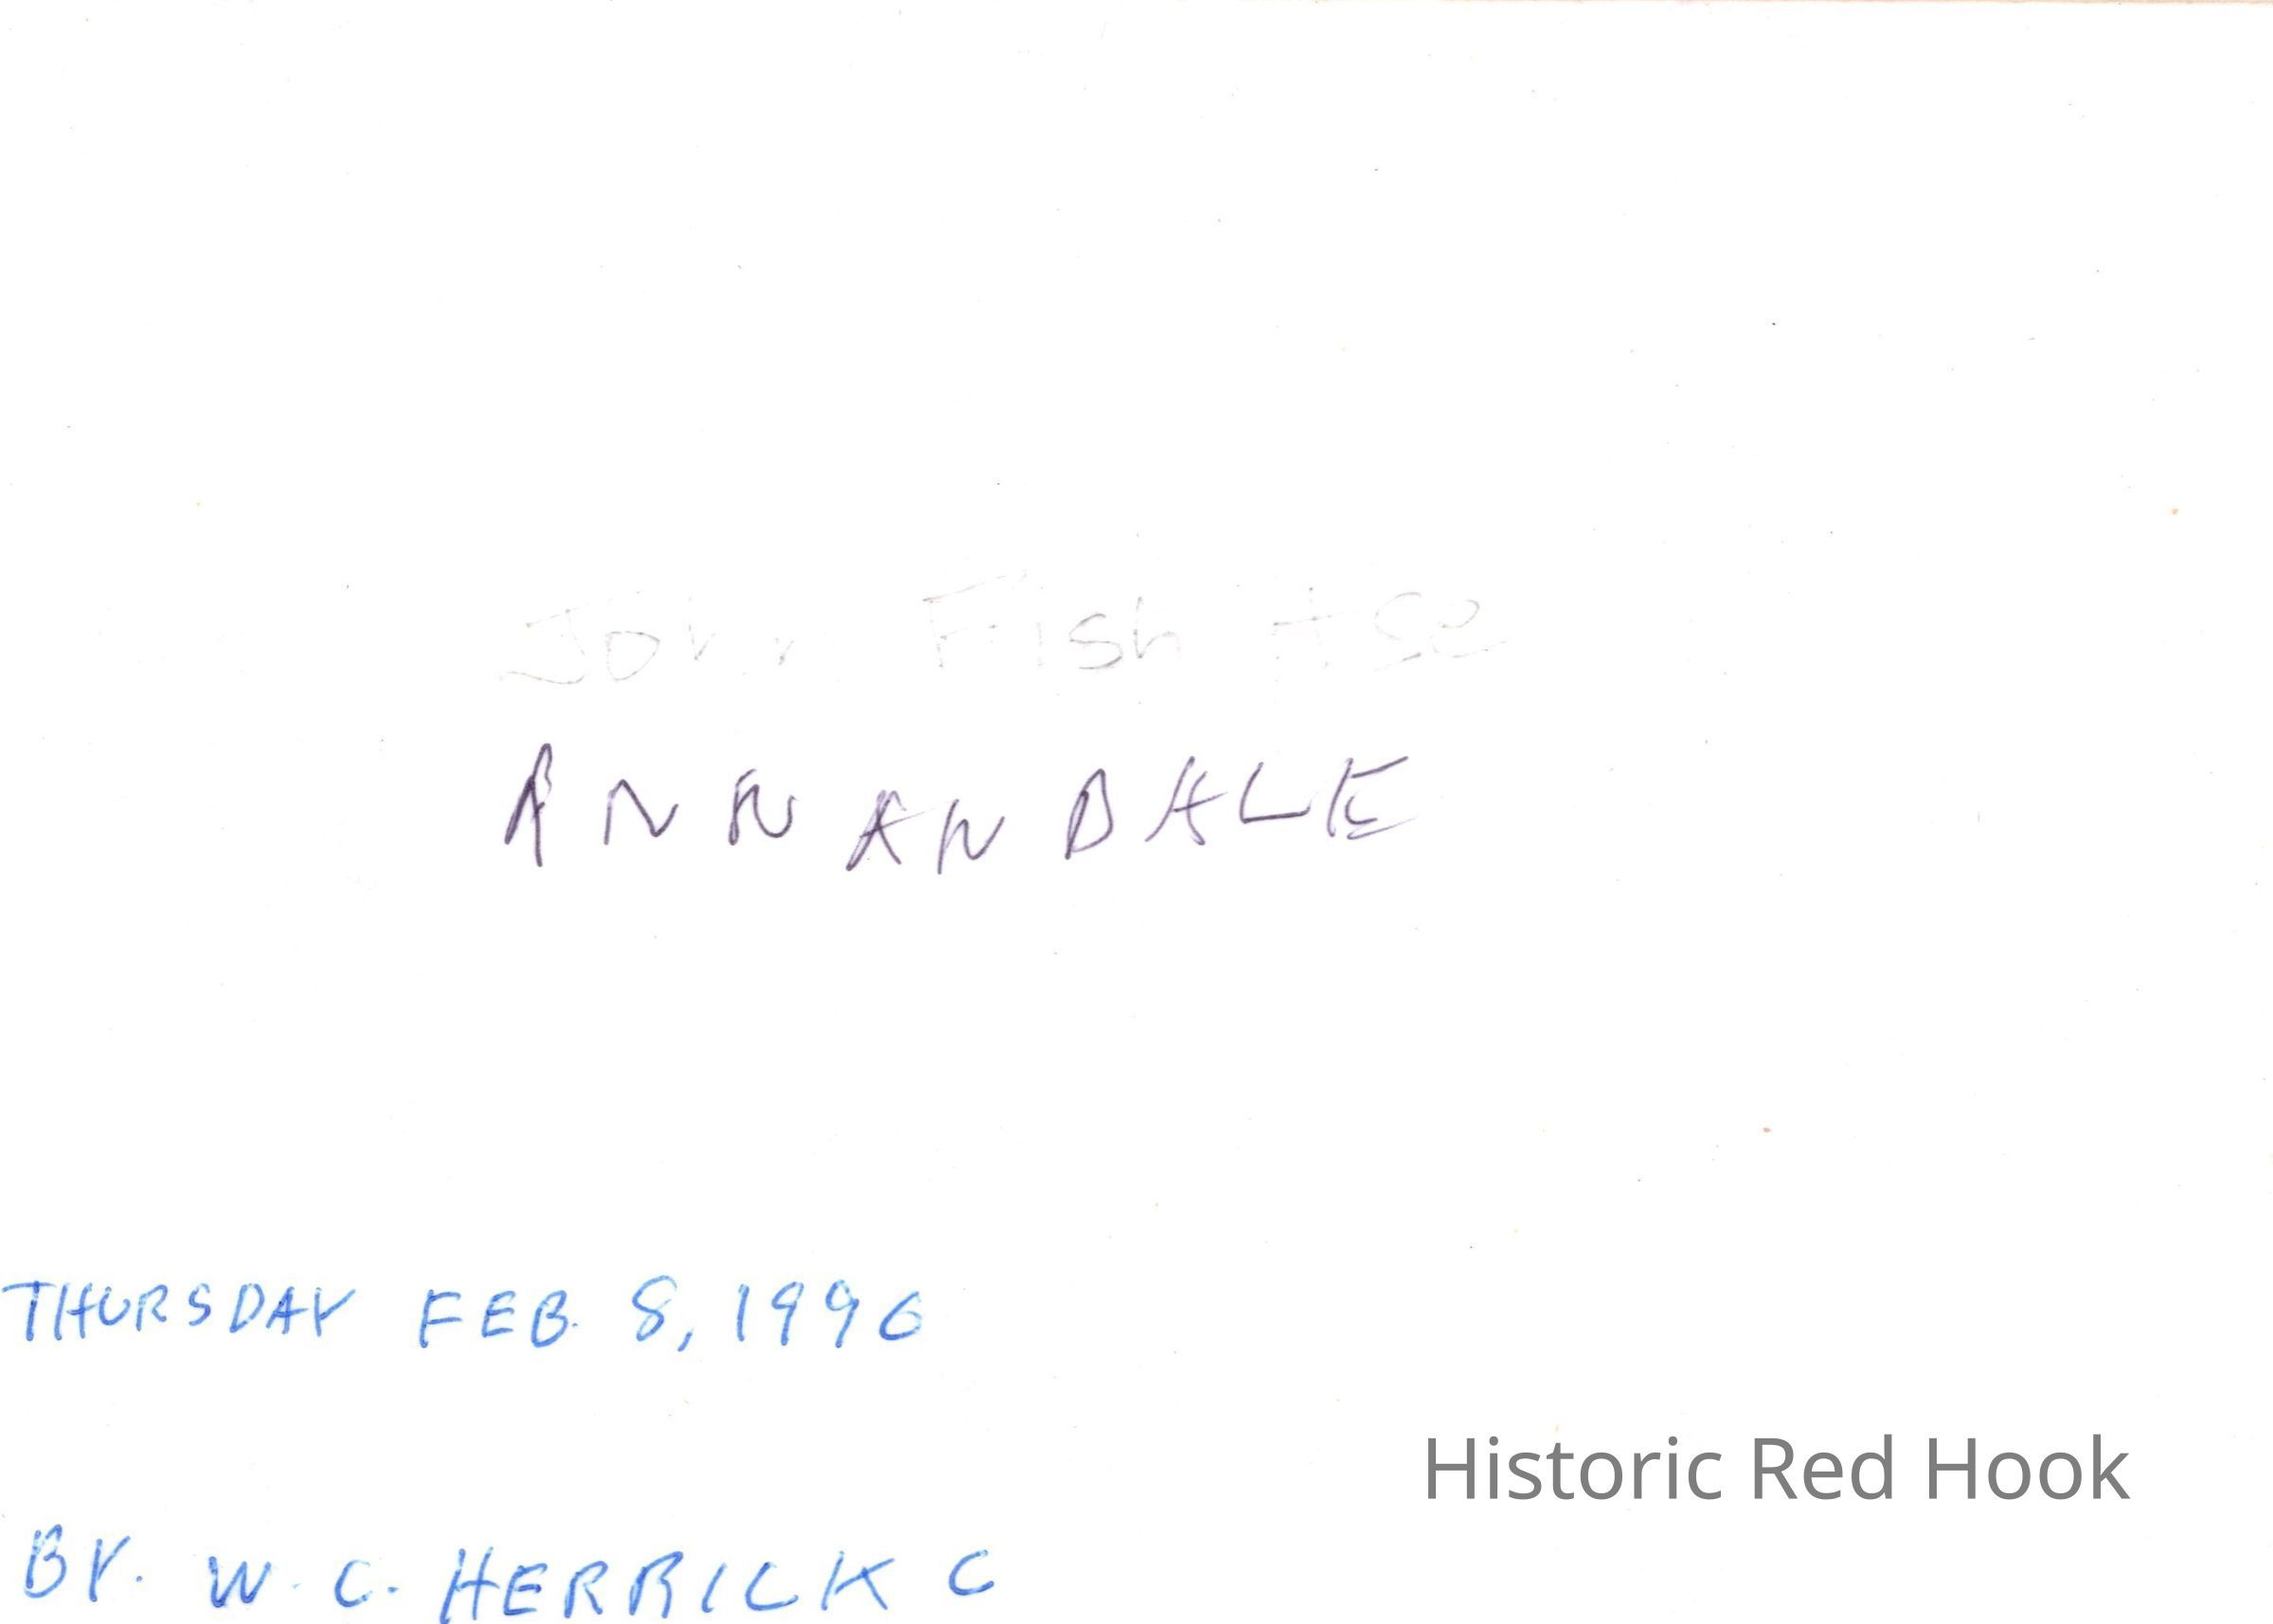 John Fish Hse
ANNANDALE
THURSDAY FEB. 8, 1996
Historic Red Hook
BY. W. C. HERRICK C